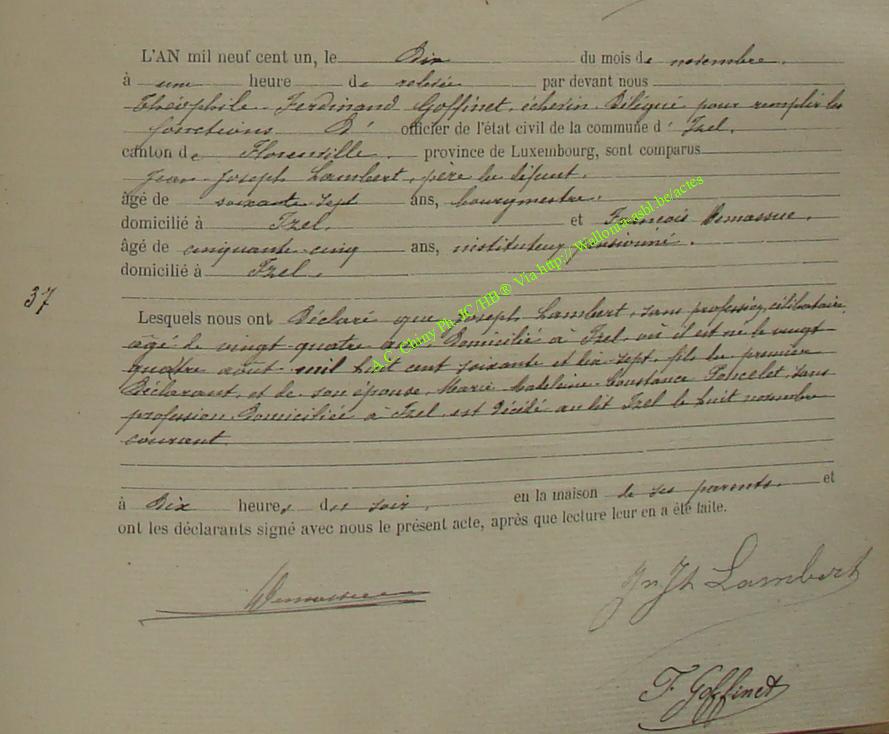 L'AN mil neuf cent un, le Dix du mois de novembre
à une heure de relevée par devant nous
Théophile Ferdinand Goffinet, échevin Délégué pour remplir les
fonctions D' officier de l'état civil de la commune d' Izel,
canton de Florenville, province de Luxembourg, sont comparus
Jean Joseph Lambert, père du défunt,
âgé de soixante sept ans, bourgmestre,
domicilié à Izel, et François Demasssue,
âgé de cinquante cinq ans, instituteur pensionné,
domicilié à Izel,
37
Lesquels nous ont Déclaré que Joseph Lambert, sans profession, célibataire,
âgé de vingt quatre ans Domicilié à Izel, où il est né le vingt
quatre août mil huit cent soixante et dix sept, fils du premier
Déclarant, et de son épouse, Marie Madeleine Constance Poncelet, sans
profession, Domiciliée à Izel, est Décédé au dit Izel le huit novembre
courant
à Dix heures du soir, en la maison de ses parents, et
ont les déclarants signé avec nous le présent acte, après que lecture leur en a été faite.
Jn Jh Lambert
F Goffinet
A.C. Chiny Ph. JC/HB® Via http://walloux-asbl.be/actes